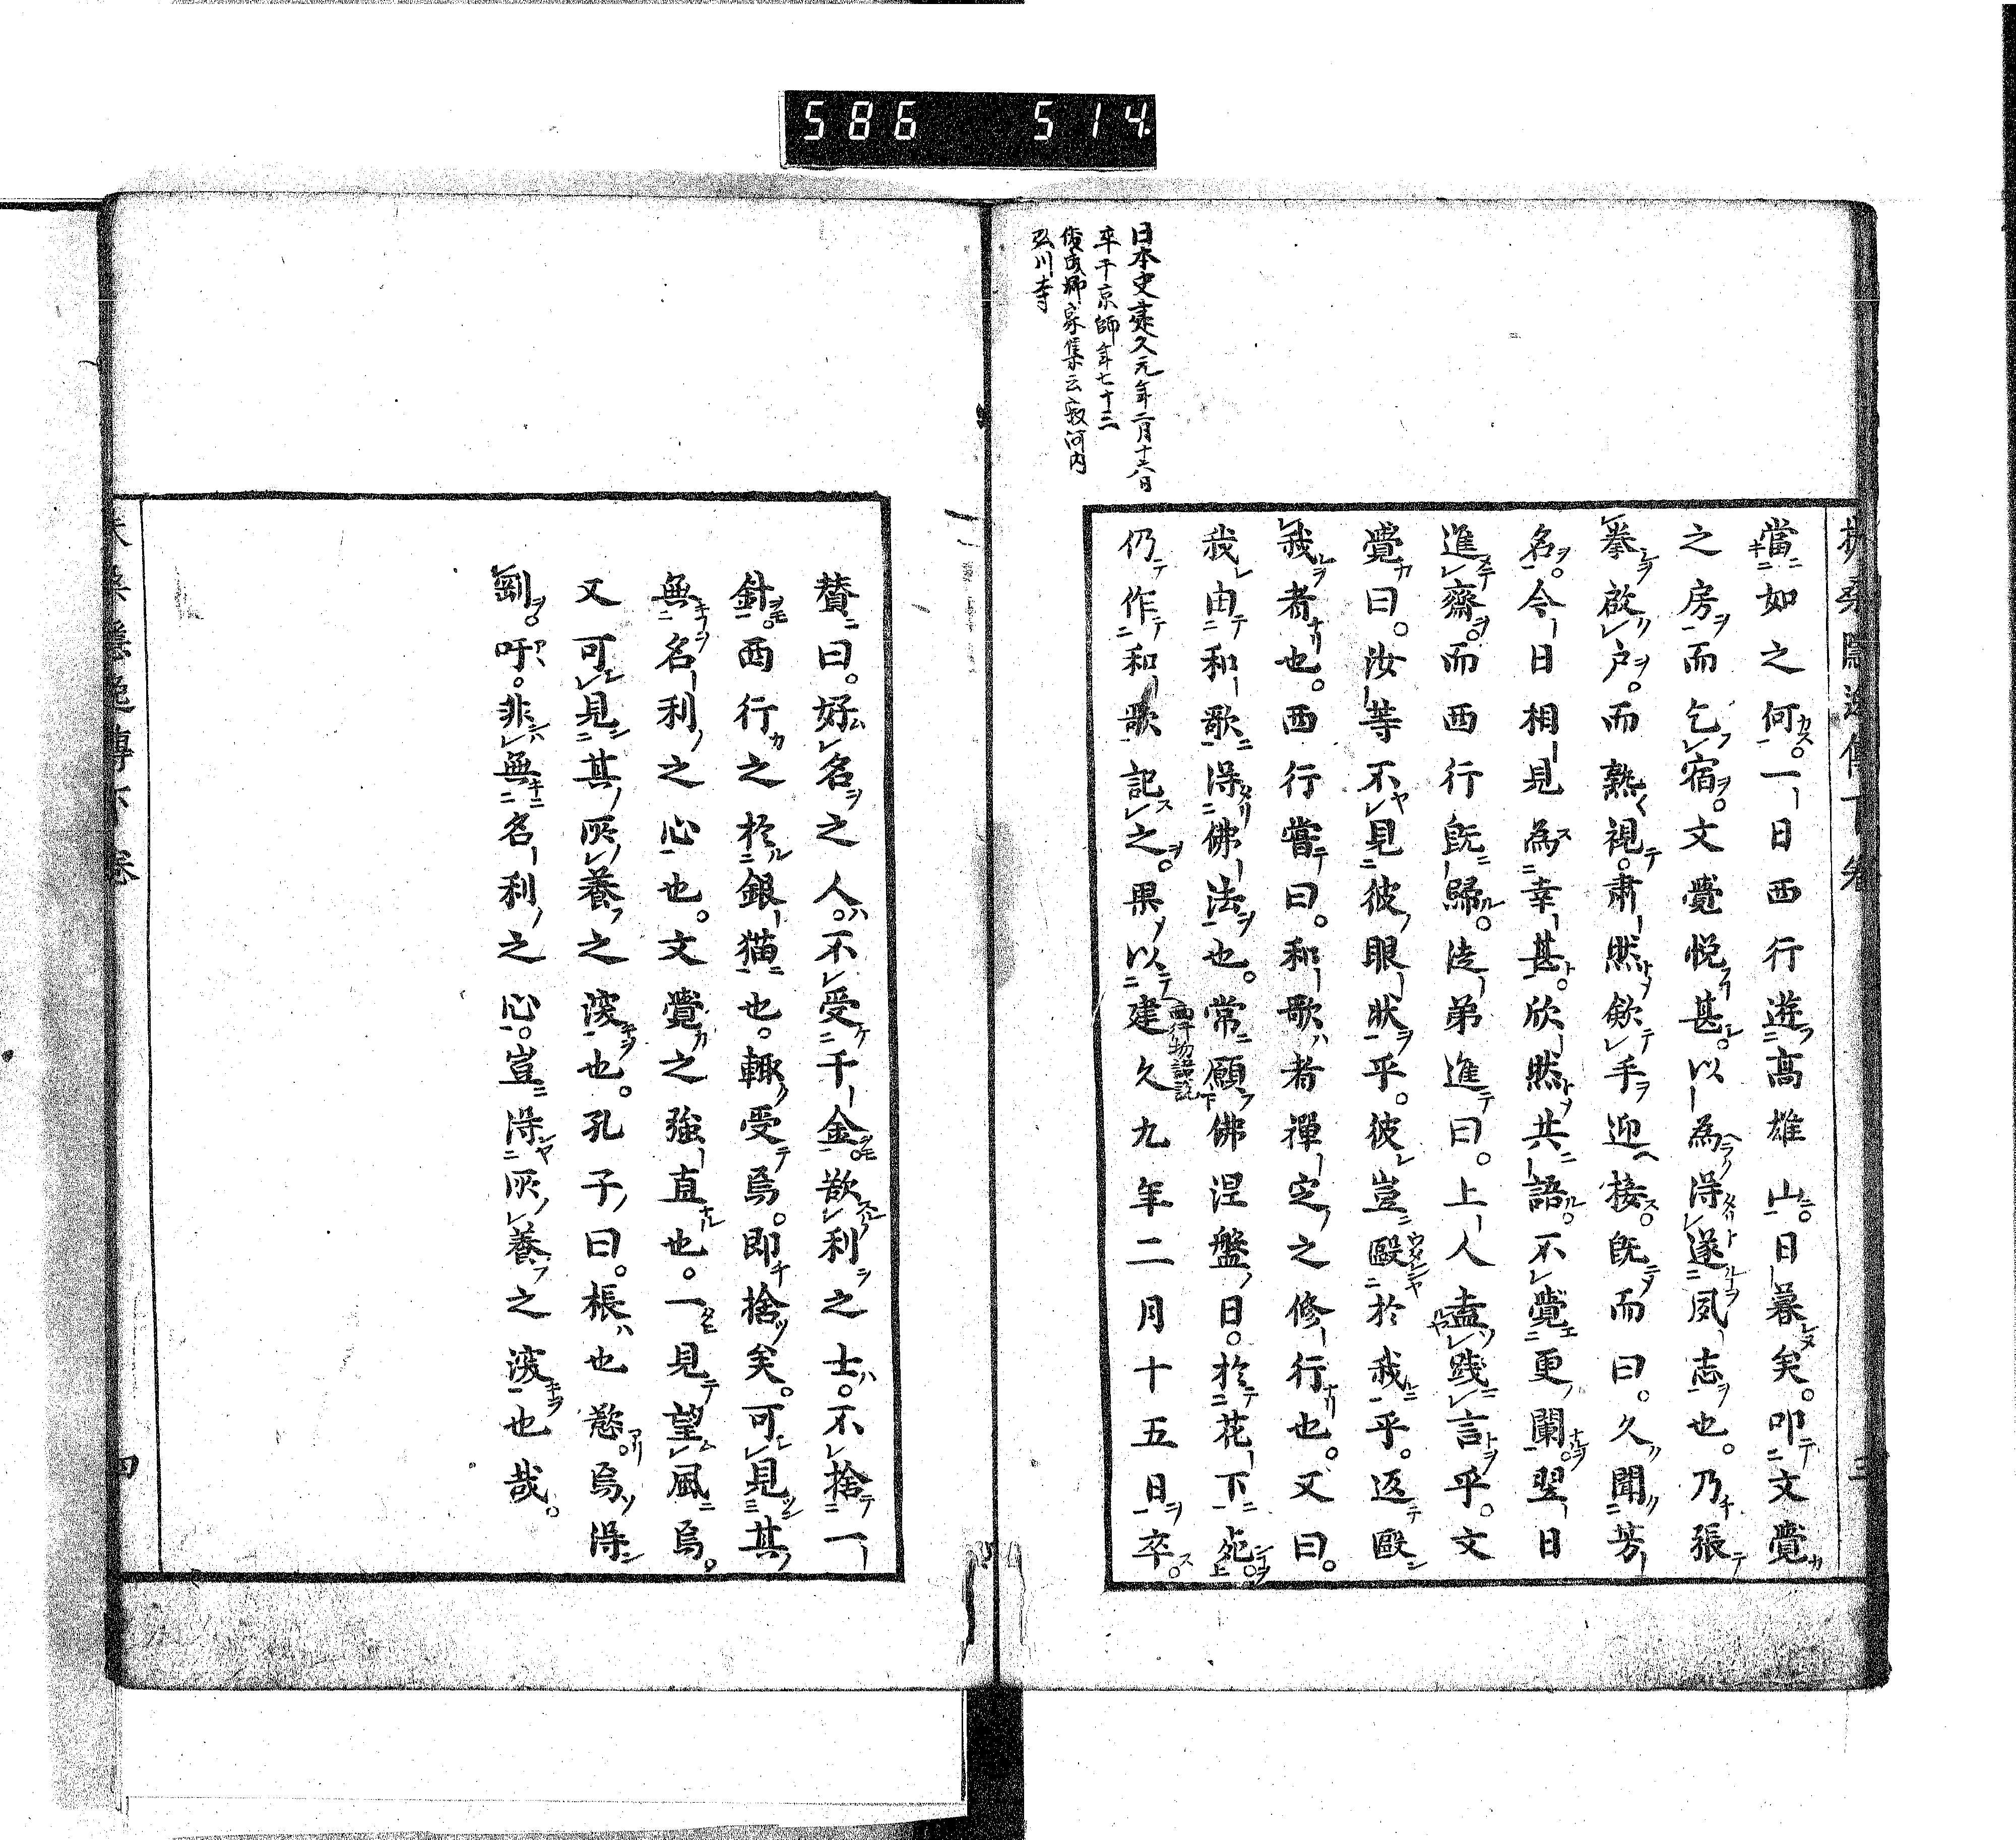 586 514
日本史建久元年二月十六日
卒于京師年七十三
俊成卿家集云寂河内
弘川寺
當如之何。一日西行遊高雄山。日暮矣。叩文覺
之房而乞宿。文覺悦甚。以為得遂夙志也。乃張
拳啟戸。而熟視。肅然斂手迎接。既而曰。久聞芳
名。今日相見為幸甚。欣然共語。不覺更闌。翌日
進齋。而西行既歸。徒弟進曰。上人盍踐言乎。文
覺曰。汝等不見彼眼狀乎。彼豈毆於我乎。返毆
我者也。西行嘗曰。和歌者禪定之修行也。又曰。
我由和歌得佛法也。常願佛涅盤日。於花下死。
仍作和歌記之。果以建久九年二月十五日卒。
西行物語説
三
賛曰。好名之人。不受千金。欲利之士。不捨一
針。西行之於銀猫也。輙受焉。即捨矣。可見其
無名利之心也。文覺之強直也。一見望風焉。
又可見其灰養之深也。孔子曰。棖也慾。焉得
剛。吁。非無名利之心。豈得灰養之深也哉。
四